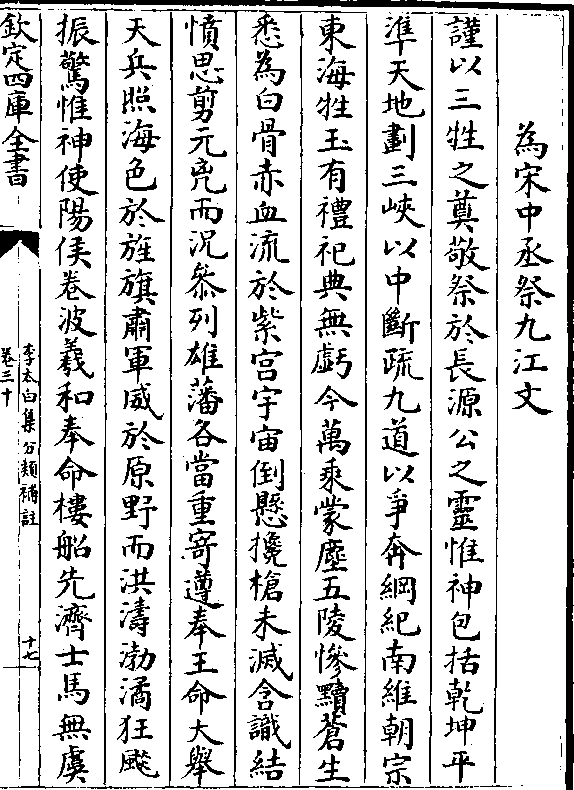 為宋中丞祭九江文
謹以三牲之奠敬祭於長源公之靈惟神包括乾坤平
準天地劃三峽以中斷疏九道以爭奔綱紀南維朝宗
東海牲玉有禮祀典無虧今萬乘蒙塵五陵慘黷蒼生
悉為白骨赤血流於紫宫宇宙倒懸攙槍未滅含識結
憤思剪元兇而況叅列雄藩各當重寄遵奉王命大舉
天兵照海色於旌旗肅軍威於原野而洪濤渤潏狂飈
振驚惟神使陽侯卷波羲和奉命樓船先濟士馬無虞
欽定四庫全書
李太白集分類補註
卷三十
十七